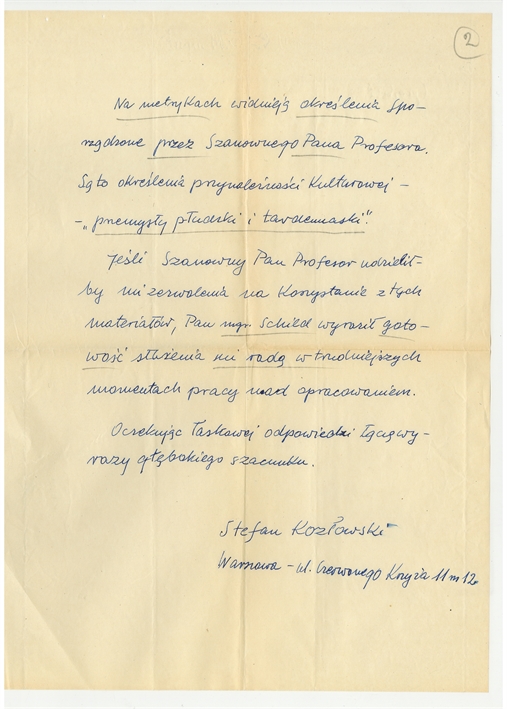 2
Na metrykach widnieją określenia spo-
rządzone przez Szanownego Pana Profesora.
Są to określenia przynależności Kulturowej -
- "przemysły płudski i tardenuaski".
Jeśli Szanowny Pan Profesor udzielił-
by mi zezwolenia na Korzystanie z tych
materiałów, Pan mgr. Schild wyraził goto-
wość służenia mi radą w trudniejszych
momentach pracy nad opracowaniem.
Oczekując łaskawej odpowiedzi łączę wy-
razy głębokiego szacunku.
Stefan Kozłowski
Warszawa - ul. Czerwonego Krzyża 11 m 12